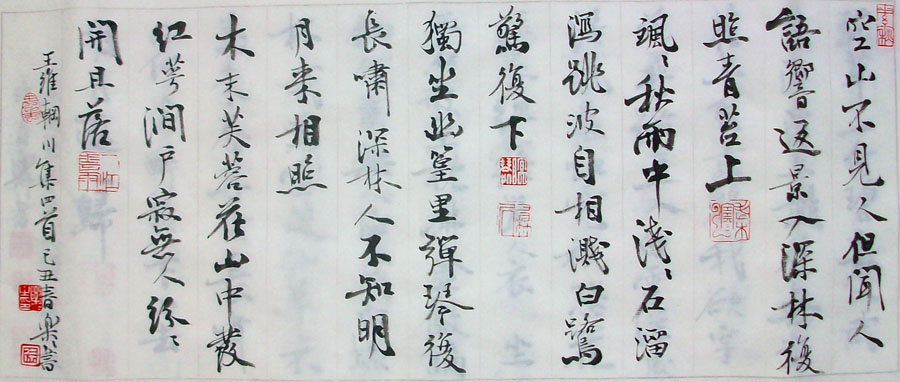 空山不見人但聞人
語響返景入深林復
照青苔上
颯〻秋雨中淺〻石溜
瀉跳波自相濺白鷺
驚復下
獨坐幽篁里彈琴復
長嘯深林人不知明
月來相照
木末芙蓉花山中發
紅萼澗戶寂無人紛〻
開且落
王維輞川集四首己丑春樂書